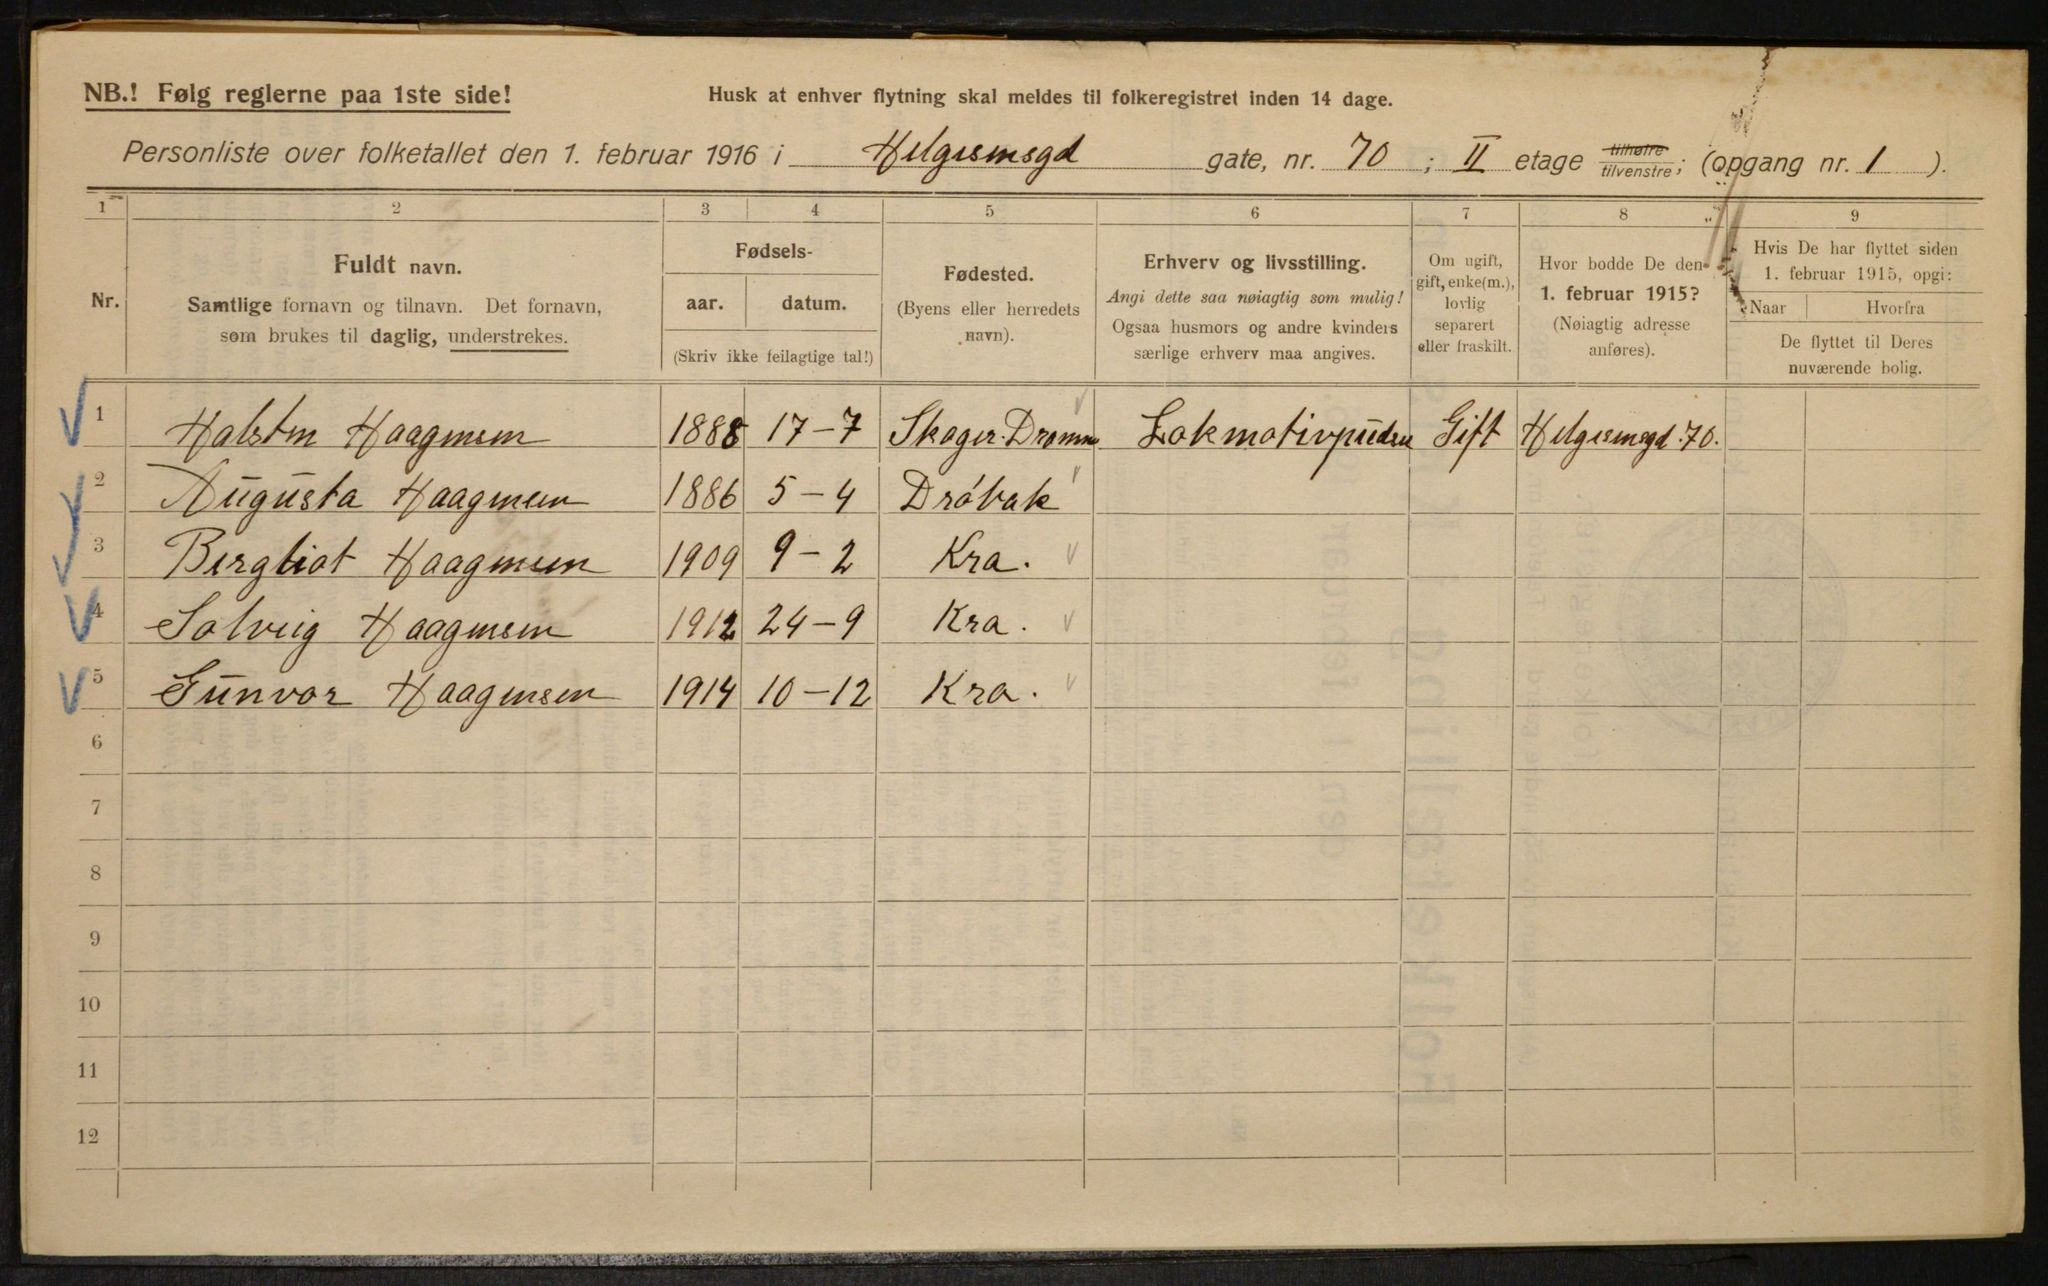 NB.! Følg reglerne paa 1ste side!
Husk at enhver flytning skal meldes til folkeregistret inden 14 dage.
Personliste over folketallet den 1. februar 1916 i Helgesensgd gate, nr. 70 ; II etage tilhøire tilvenstre; (opgang nr. 1 ).
1 2 3 4 5 6 7 8 9
Nr.
Fuldt navn.
Samtlige fornavn og tilnavn. Det fornavn,
som brukes til daglig, understrekes.
Fødsels-
aar. datum.
(Skriv ikke feilagtige tal!)
Fødested.
(Byens eller herredets
navn).
Erhverv og livsstilling.
Angi dette saa nøiagtig som mulig!
Ogsaa husmors og andre kvinders
særlige erhverv maa angives.
Om ugift,
gift, enke(m.),
lovlig
separert
eller fraskilt.
Hvor bodde De den
1. februar 1915?
(Nøiagtig adresse
anføres).
Hvis De har flyttet siden
1. februar 1915, opgi:
Naar Hvorfra
De flyttet til Deres
nuværende bolig.
1 Halsten Haagensen 1888 17-7 Skoger. Dramm Lokmotivpudser Gift Helgesensgd. 70.
2 Augusta Haagensen 1886 5-4 Dröbak
3 Bergliot Haagensen 1909 9-2 Kra.
4 Solveig Haagensen 1912 24-9 Kra.
5 Gunvor Haagensen 1914 10-12 Kra.
6
7
8
9
10
11
12